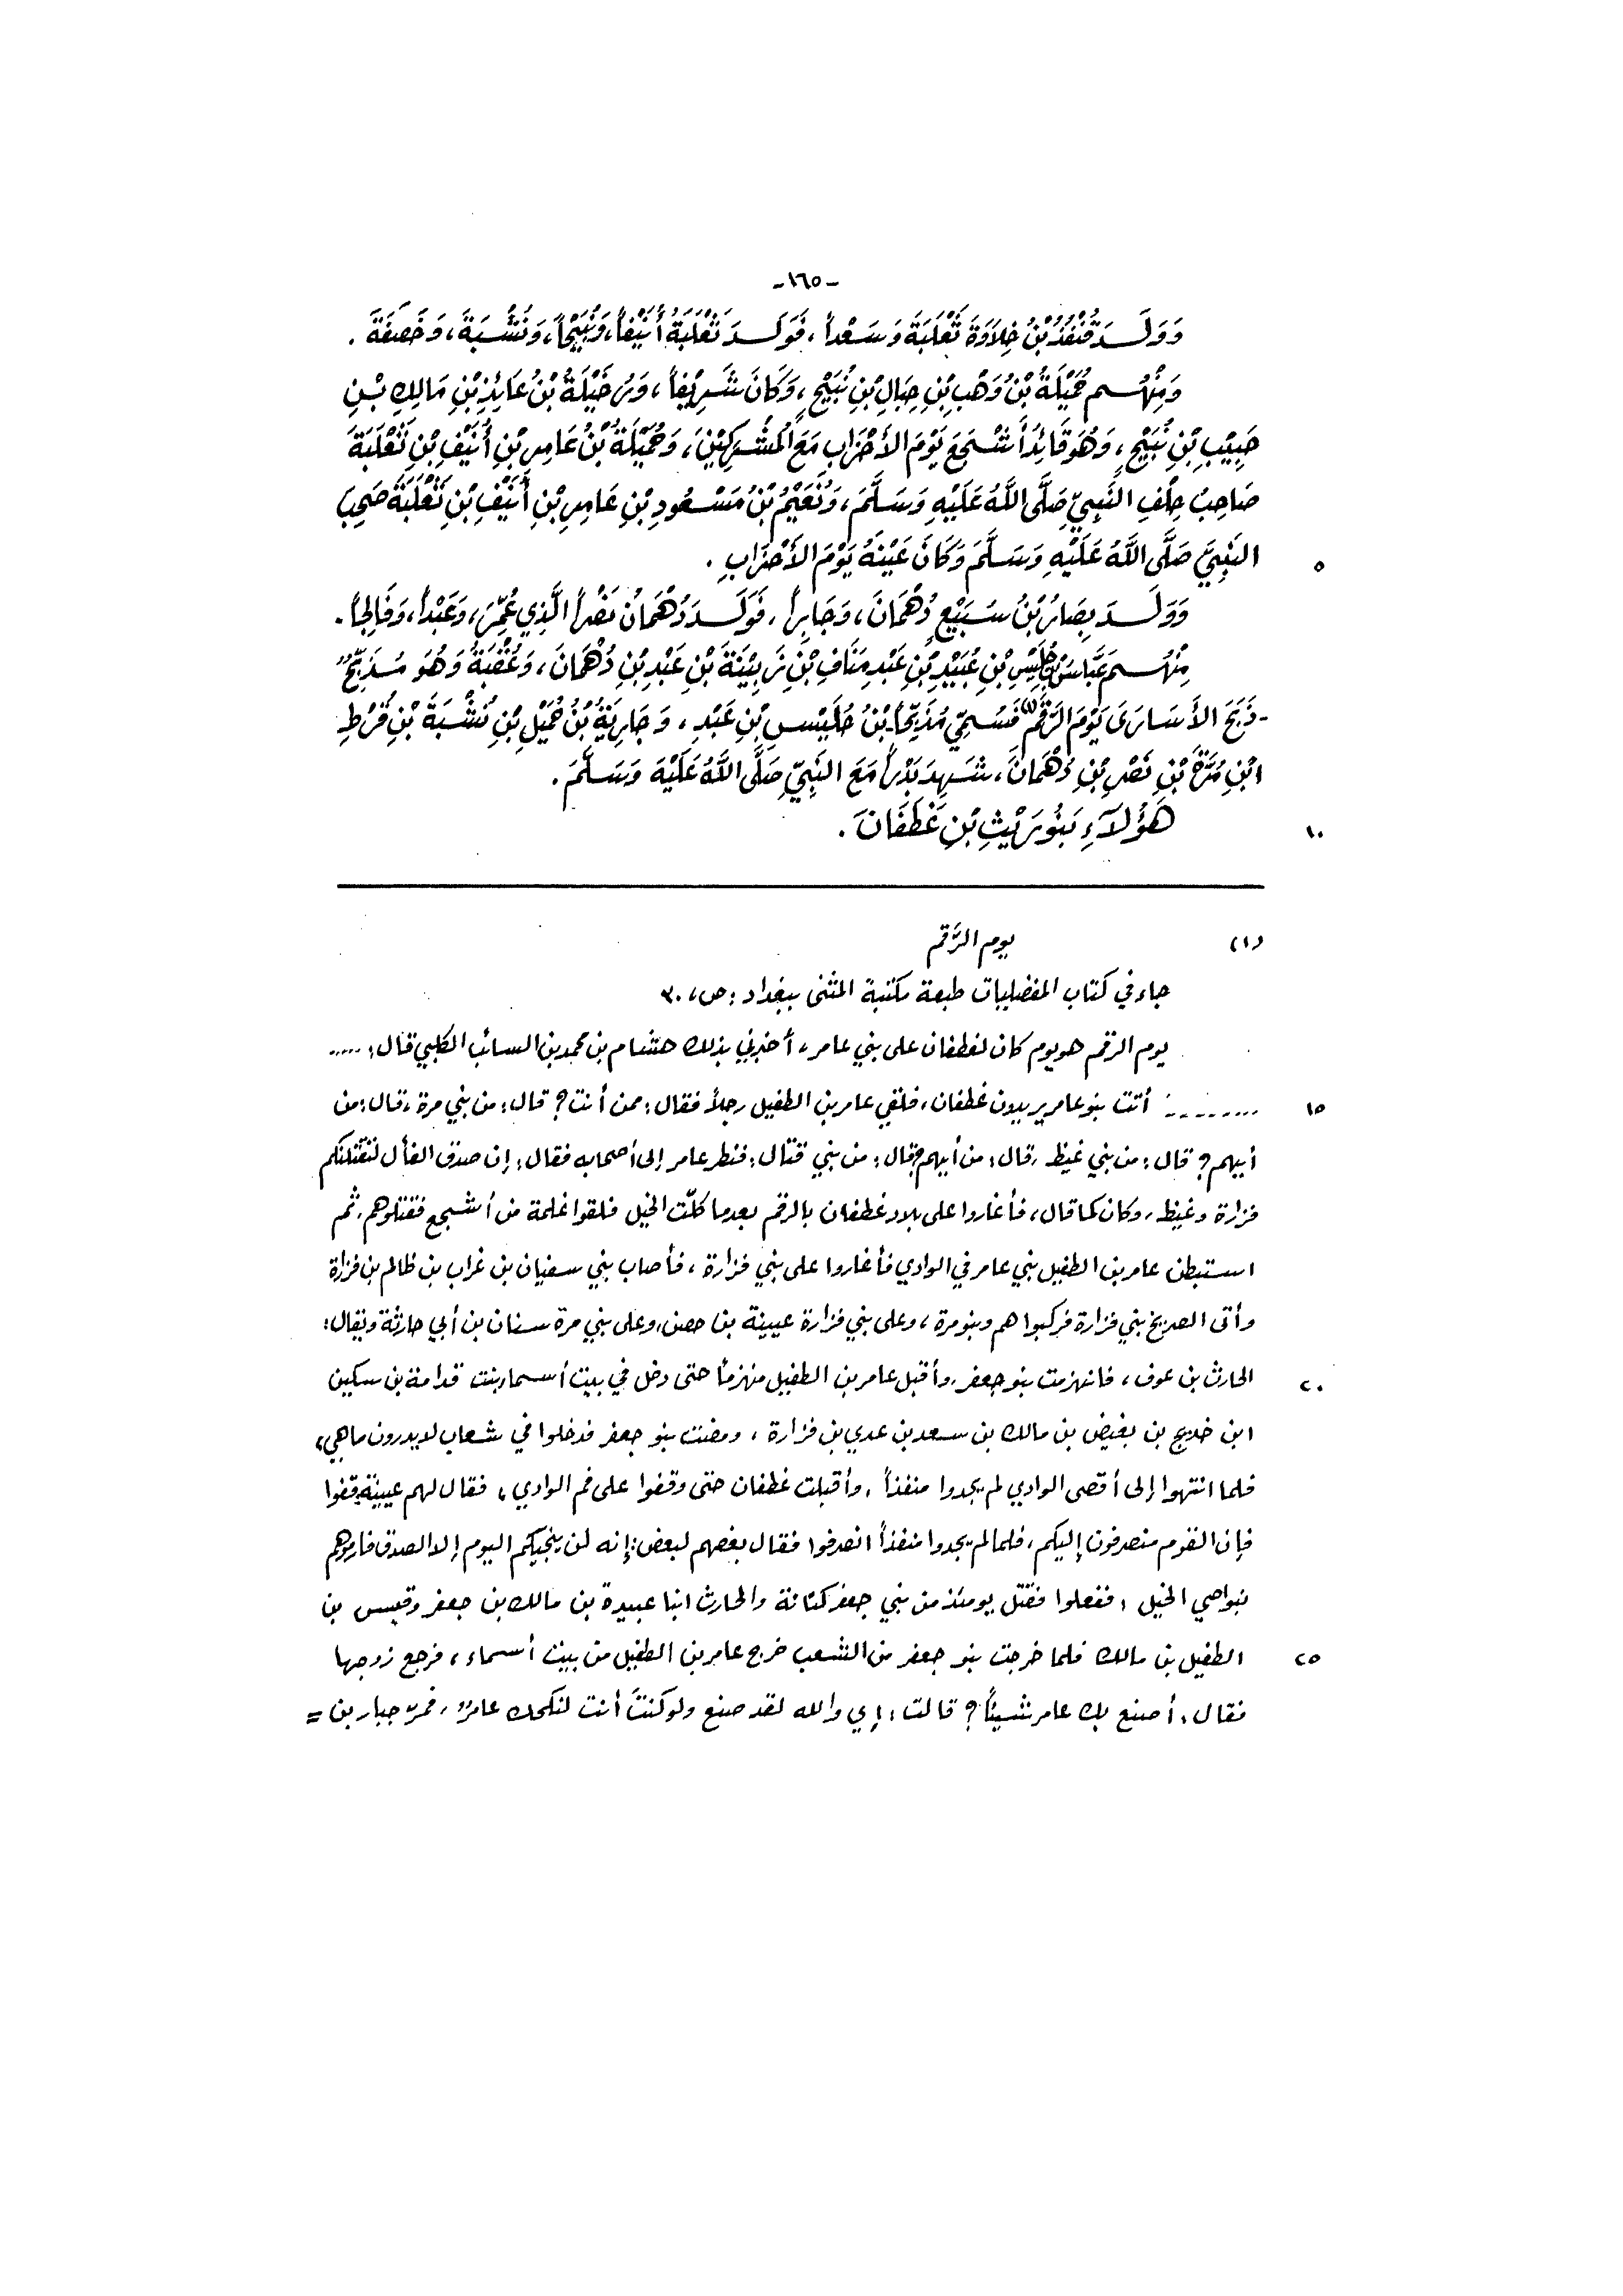 -١٦٥-
وَوَلَدَ قُنْفُذُ بْنُ خِلَاوَةَ ثَعْلَبَةَ وَسَعْداً، فَوَلَدَ ثَعْلَبَةُ أُنَيْفاً، وَنُبَيْحاً، وَنُشْبَةَ، وَخَصَفَةَ.
وَمِنْهُم حُمَيْلَةُ بْنُ وَهْبِ بْنِ حِبَالِ بْنِ نُبَيْحٍ، وَكَانَ شَرِيْفاً، وَرُخَيْلَةُ بْنُ عَائِذِ بْنِ مَالِكِ بْنِ
حَبِيْبِ بْنِ نُبَيْحٍ، وَهُوَ قَائِدُ أَشْجَعَ يَوْمَ الأَحْزَابِ مَعَ الْمُشْرِكِيْنَ، وَحُمَيْلَةُ بْنُ عَامِرِ بْنِ أُنَيْفِ بْنِ ثَعْلَبَةَ
صَاحِبُ حِلْفِ النَّبِيِّ صَلَّى اللَّهُ عَلَيْهِ وَسَلَّمَ، وَنُعَيْمُ بْنُ مَسْعُودِ بْنِ عَامِرِ بْنِ أُنَيْفِ بْنِ ثَعْلَبَةَ صَحِبَ
النَّبِيَّ صَلَّى اللَّهُ عَلَيْهِ وَسَلَّمَ وَكَانَ عَيْنَهُ يَوْمَ الأَحْزَابِ. ٥
وَوَلَدَ بِصَارُ بْنُ سُبَيْعٍ دُهْمَانَ، وَجَابِراً، فَوَلَدَ دُهْمَانُ نَصْراً الَّذِي عُمِّرَ، وَعَبْداً، وَفَالِجاً.
مِنْهُم عَبَّاسُ بْنُ حُلَيْسِ بْنِ عُبَيْدِ بْنِ عَبْدِ مَنَافِ بْنِ زَبِيْنَةَ بْنِ عَبْدِ بْنِ دُهْمَانَ، وَعُقْبَةُ وَهُوَ مُذَبِّحٌ
-ذَبَحَ الأَسَارَى يَوْمَ الرَّقَمِ(١) فَسُمِّيَ مُذَبِّحاً- بْنُ حُلَيْسِ بْنِ عَبْدِ، وَجَارِيَةُ بْنُ حُمَيْلِ بْنِ نُشْبَةَ بْنِ قُرْطِ
ابْنِ مُرَّةَ بْنِ نَصْرِ بْنِ دُهْمَانَ، شَهِدَ بَدْراً مَعَ النَّبِيِّ صَلَّى اللَّهُ عَلَيْهِ وَسَلَّمَ.
هَؤُلَآءِ بَنُو رَيْثِ بْنِ غَطَفَانَ. ١٠
(١) يوم الرَّقم
جاء في كتاب المفضليات طبعة مكتبة المثنى ببغداد: ص، ٣٠
يوم الرقم هو يوم كان لغطفان على بني عامر، أخبرني بذلك هشام بن محمد بن السائب الكلبي قال: .....
......... أتت بنو عامر يريدون غطفان، فلقي عامر بن الطفيل رجلاً فقال: ممن أنت؟ قال: من بني مرة، قال: من ١٥
أيهم؟ قال: من بني غيظ، قال: من أيهم؟ قال: من بني قتال، فنظر عامر إلى أصحابه فقال: إن صدق الفأل لتقتلنكم
فزارة وغيظ، وكان كما قال، فأغاروا على بلاد غطفان بالرقم بعدما كلّت الخيل فلقوا غلمة من أشجع فقتلوهم، ثم
استبطن عامر بن الطفيل بني عامر في الوادي فأغاروا على بني فزارة، فأصاب بني سفيان بن غراب بن ظالم بن فزارة
وأتى الصريخ بني فزارة فركبوا هم وبنو مرة، وعلى بني فزارة عيينة بن حصن، وعلى بني مرة سنان بن أبي حارثة ويقال:
الحارث بن عوف، فانهزمت بنو جعفر، وأقبل عامر بن الطفيل منهزماً حتى دخل في بيت أسماء بنت قدامة بن سكين ٢٠
ابن خديج بن بغيض بن مالك بن سعد بن عدي بن فزارة، ومضت بنو جعفر فدخلوا في شعاب لا يدرون ما هي،
فلما انتهوا إلى أقصى الوادي لم يجدوا منفذاً، وأقبلت غطفان حتى وقفوا على فم الوادي، فقال لهم عيينة: قفوا
فإن القوم منصرفون إليكم، فلما لم يجدوا منفذاً انصرفوا فقال بعضهم لبعض: إنه لن ينجيكم اليوم إلا الصدق فارموهم
بنواصي الخيل، ففعلوا فقتل يومئذ من بني جعفر كنانة والحارث ابنا عبيدة بن مالك بن جعفر وقيس بن
الطفيل بن مالك فلما خرجت بنو جعفر من الشعب خرج عامر بن الطفيل من بيت أسماء، فرجع زوجها ٢٥
فقال: أصنع بك عامر شيئاً؟ قالت: إي والله لقد صنع ولو كنتَ أنت لنكحك عامرٌ، فمرّ جبار بن =